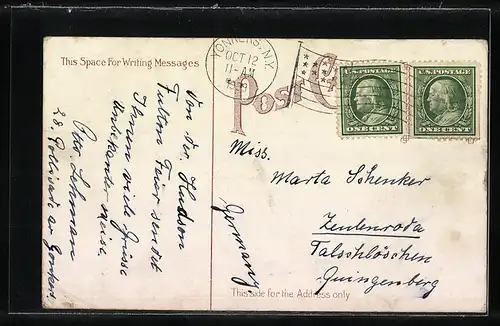 This Space For Writing Messages
YONKERS, N.Y.
OCT 12
11-AM
Post C
U.S. POSTAGE
ONE CENT
U.S. POSTAGE
ONE CENT
Von der Hudson
Fulton Feier sendet
Ihnen viele Grüsse
Unbekannterweise
Otto Lehman
28.
Miss.
Marta Schenker
Zeulenroda
Talschlöschen
Quingenberg
Germany
This side for the Address only